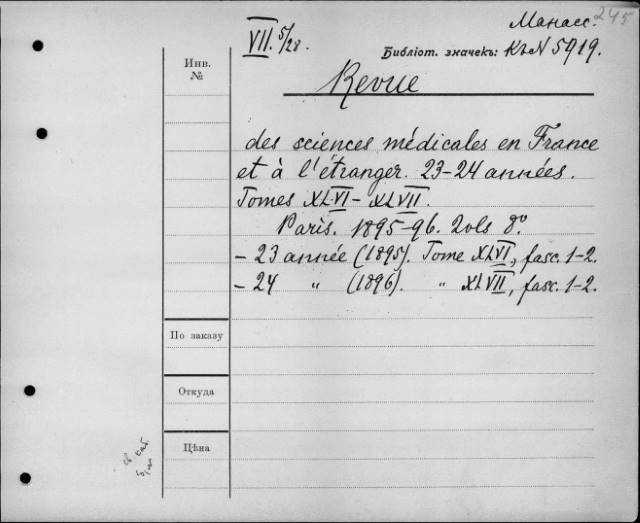 245
Манасс.
VII. 5/28.
Библіот. значекъ: Кл N 5919.
Инв.
№
Revue
des sciences médicales en France
et à l'étranger. 23-24 années.
Tomes XLVI - XLVII.
Paris. 1895-96. 2 vols 8°
- 23 année (1895). Tome XLVI, fasc. 1-2.
- 24 " (1896). " XLVII, fasc. 1-2.
По заказу
Откуда
Цѣна